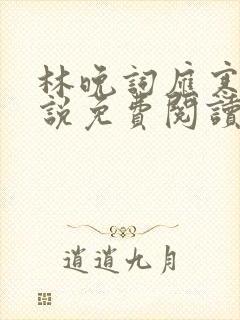 林晚詞雁寒
說免費閱讀
逍逍九月